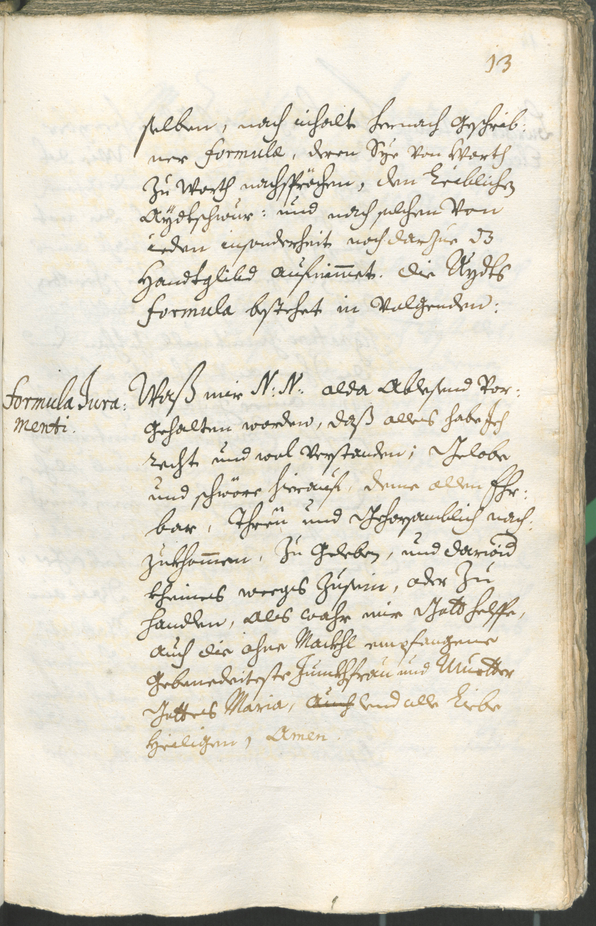 13
selben, nach inhalt hernach geschrib:
ner formul, deren Sye von Worth
zu Worth nachsprechen, den Leiblichen
Aydtschwur: und nach solchem von
ieden insonderheit noch darzue dz
Handtglibd aufnimmet. die Aydts
formula bestehet in volgenden:
Formula Jura:
menti.
Waß mir N: N: alda Ablesend vor:
gehalten worden, daß alles habe Ich
recht und wol verstanden; Gelobe
und schwöre hierauf, deme allen Ehr:
bar, Threu und Gehorsamblich nach:
zukhommen, zu geleben, und darwid
kheines weegs zusein, oder zu
handlen, Als wahr mir Gott helffe,
auch die ohne Mackhl empfangene
gebenedeiteste Junckhfrau und Muetter
Gottes Maria, auch und alle Liebe
Heiligen, Amen.